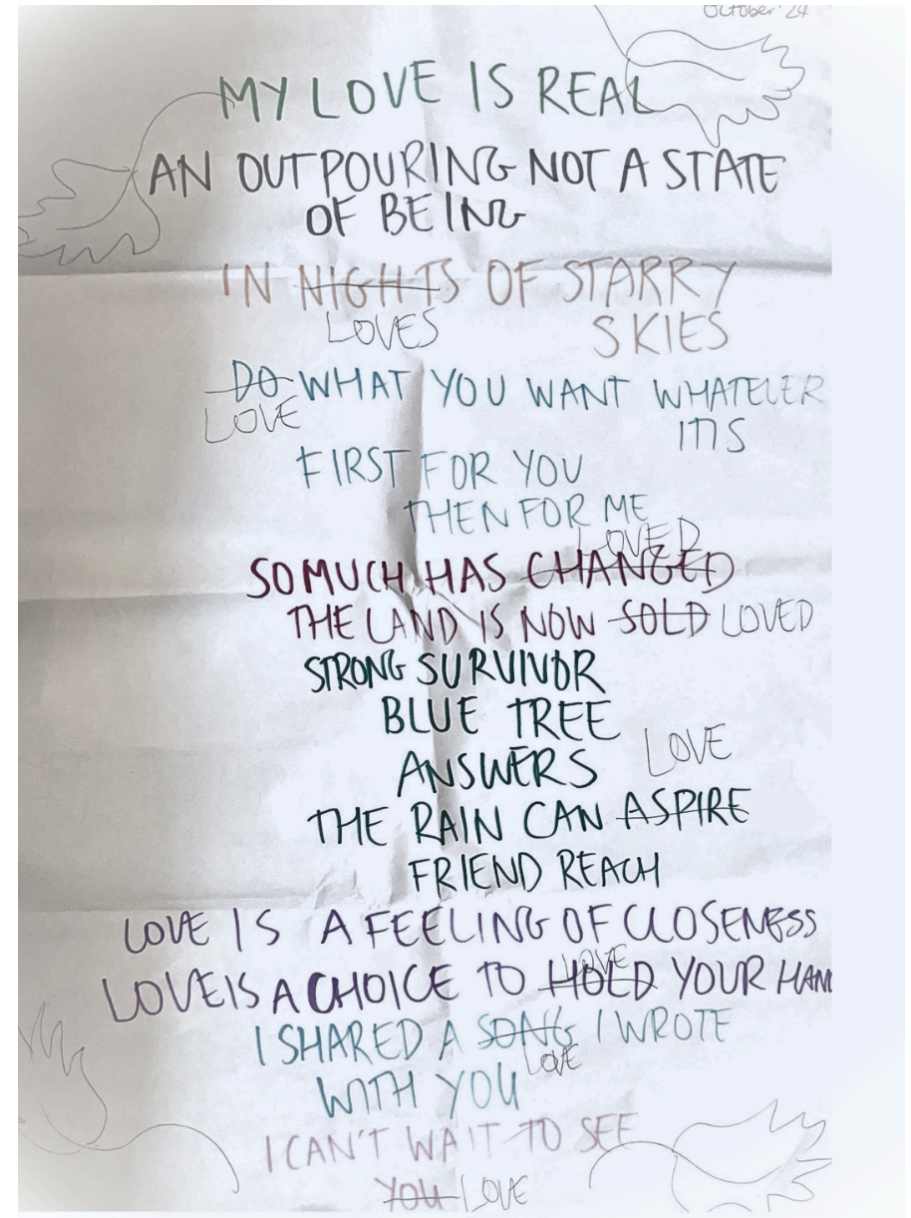 October '24
MY LOVE IS REAL
AN OUTPOURING NOT A STATE
OF BEING
IN NIGHTS OF STARRY
LOVES SKIES
DO WHAT YOU WANT WHATEVER
LOVE ITIS
FIRST FOR YOU
THEN FOR ME
LOVED
SO MUCH HAS CHANGED
THE LAND IS NOW SOLD LOVED
STRONG SURVIVOR
BLUE TREE
ANSWERS LOVE
THE RAIN CAN ASPIRE
FRIEND REACH
LOVE IS A FEELING OF CLOSENESS
LOVE
LOVE IS A CHOICE TO HOLD YOUR HAN
I SHARED A SONG I WROTE
LOVE
WITH YOU
I CAN'T WAIT TO SEE
YOU LOVE